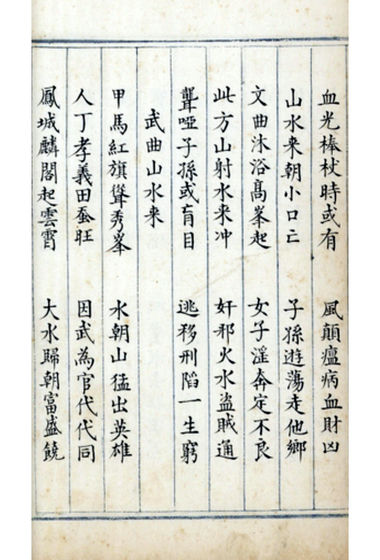 血光棒杖時或有　風顛瘟病血財凶
山水来朝小口亡　子孫遊蕩走他鄉
文曲沐浴髙峯起　女子淫奔定不良
此方山射水来冲　奸邪火水盜賊通
聾啞子孫或肓目　逃移刑陷一生窮
武曲山水来
甲馬紅旗聳秀峯　水朝山猛出英雄
人丁孝義田蚕旺　因武為官代代同
鳳城麟閣起雲霄　大水歸朝富盛饒